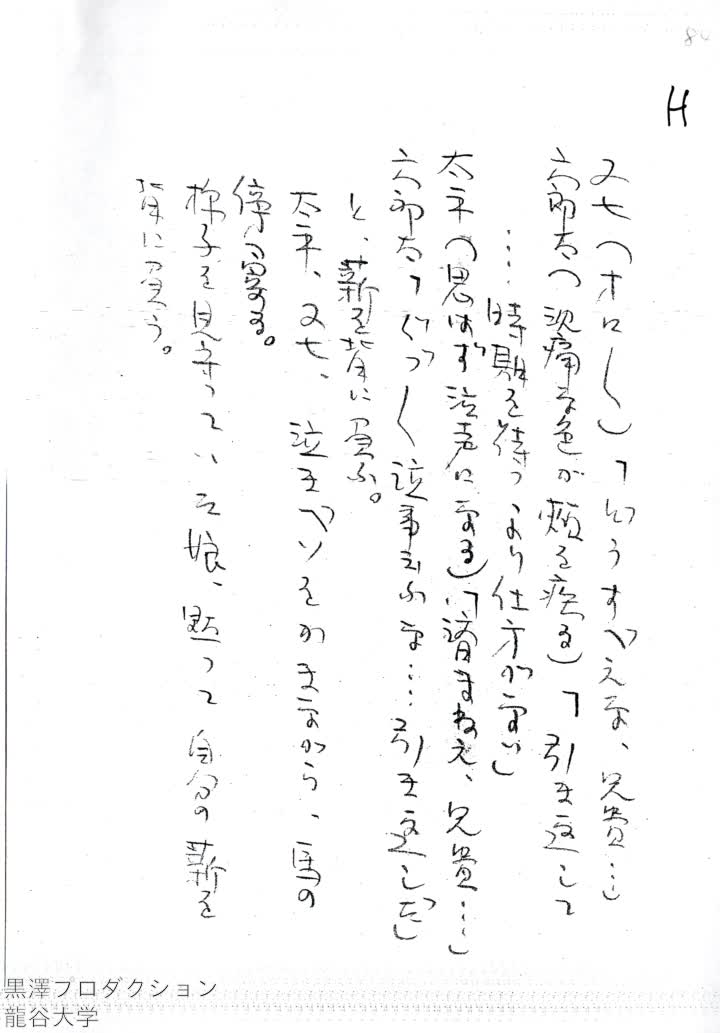 84
H
又七(オロ〱)「どうすべえな、兄貴…」
六郎太(沈痛な色が頬を疾る)「引き返して
…時期を待つより仕方がない」
太平(思はず泣声になる)「済まねえ、兄貴…」
六郎太「ぐづ〱泣事云ふな…引き返しだ」
と、薪を背に負ふ。
太平、又七、泣きベソをかきながら、馬の
傍へ寄る。
様子を見守っていた娘、黙って自分の薪を
背に負う。
黒澤プロダクション
龍谷大学